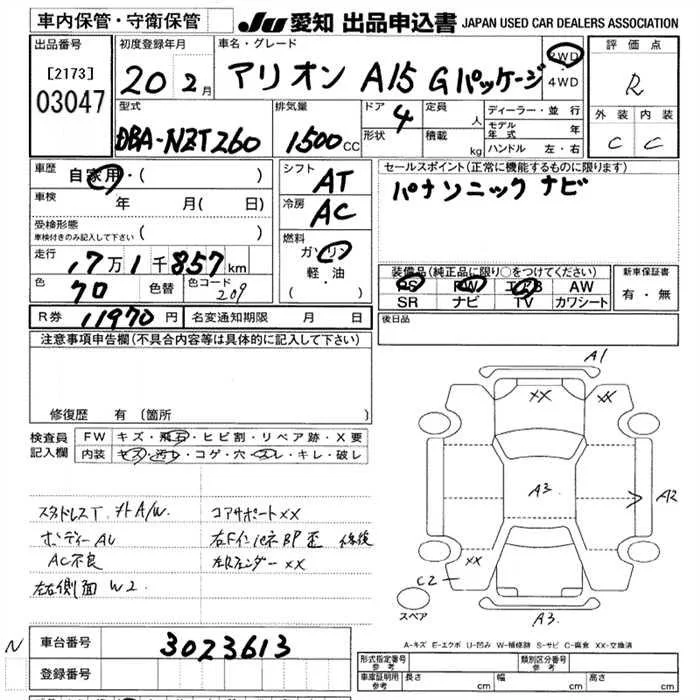 車内保管・守衛保管
JU 愛知 出品申込書 JAPAN USED CAR DEALERS ASSOCIATION
出品番号
[2173]
03047
初度登録年月
20 2月
車名・グレード
アリオン A15 Gパッケージ
2WD
・
4WD
評価点
R
外装 内装
C C
型式
DBA-NZT260
排気量
1500cc
ドア 4
形状
定員 人
積載 kg
ディーラー・並行
モデル年式 年
ハンドル 左・右
車歴
自家用・( )
車検 年 月( 日)
受検形態
車検付きのみ記入して下さい ( )
走行
17万1千857km
色 クロ 色替 色コード 209
シフト AT
冷房 AC
燃料
ガソリン
軽・油
( ・ )
セールスポイント(正常に機能するものに限ります)
パナソニック ナビ
装備品(純正品に限り○をつけてください)
PS PW エアB AW
SR ナビ TV カワシート
新車保証書
有・無
R券 11970円 名変通知期限 月 日
後日品
注意事項申告欄(不具合内容等は具体的に記入して下さい)
修復歴 有(箇所 )
検査員
記入欄
FW キズ・飛石・ヒビ割・リペア跡・X要
内装 キズ・汚レ・コゲ・穴・スレ・キレ・破レ
スタドレスT. 外A/W.
コアサポートXX
ボディーAU
AC不良
左右側面 W2
A1
XX
XX
A3.
A2
XX
C2
A3.
スペア
A-キズ E-エクボ U-凹み W-補修跡 S-サビ C-腐食 XX-交換済
N
車台番号 3023613
登録番号
形式指定番号 参考
類別区分番号 参考
車庫証明用 参考
長さ cm
幅 cm
高さ cm